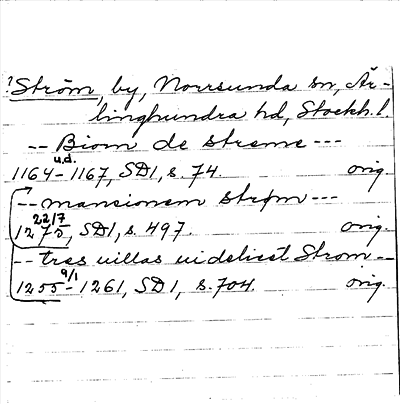 ? Ström, by, Norrsunda sn, Är-
linghundra hd, Stockh. l.
-- Biorn de streme ---
u.d.
1164-1167, SD1, s. 74. orig.
-- mansionem strøm ---
22/7
1275, SD1, s. 497. orig.
-- tres uillas uidelicet Strom --
9/1
1255-1261, SD 1, s. 704. orig.